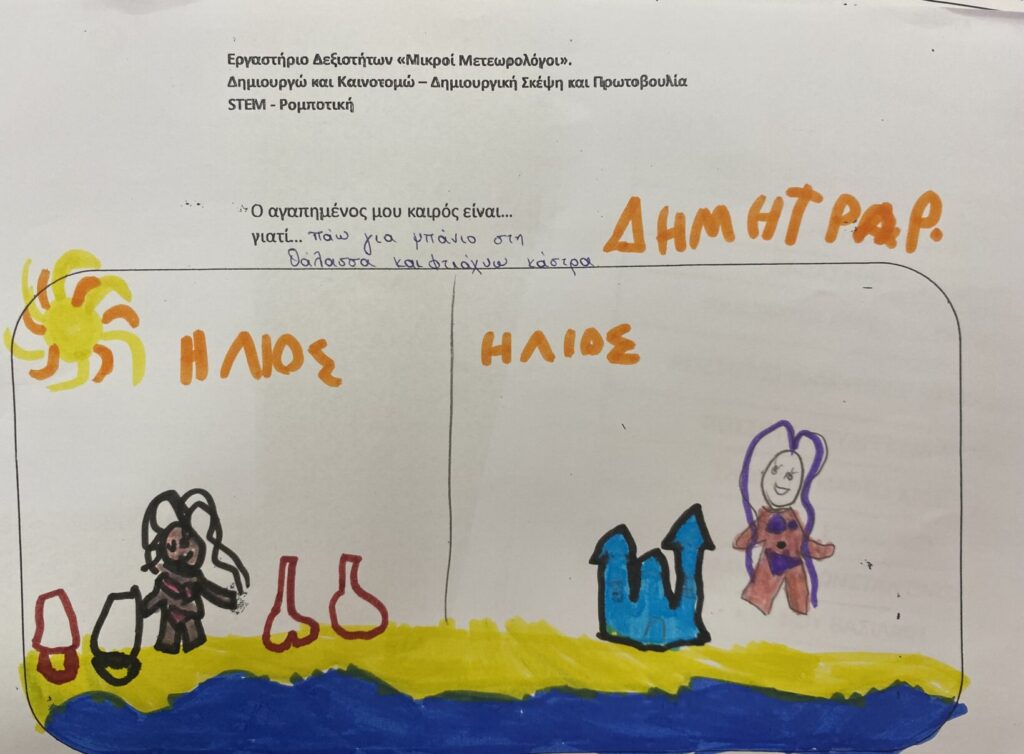 Εργαστήριο Δεξιοτήτων «Μικροί Μετεωρολόγοι».
Δημιουργώ και Καινοτομώ – Δημιουργική Σκέψη και Πρωτοβουλία
STEM - Ρομποτική
Ο αγαπημένος μου καιρός είναι...
γιατί... πάω για μπάνιο στη
θάλασσα και φτιάχνω κάστρα
ΔΗΜΗΤΡΑ Ρ.
ΗΛΙΟΣ
ΗΛΙΟΣ